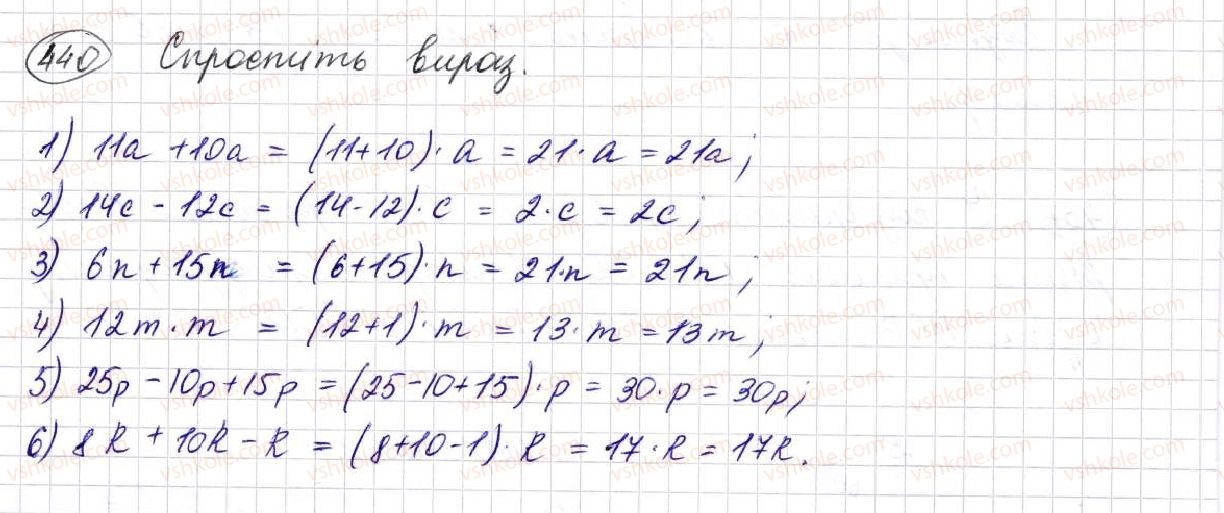 440 Спростіть вираз.
1) 11a + 10a = (11+10)·a = 21·a = 21a;
2) 14c - 12c = (14-12)·c = 2·c = 2c;
3) 6n + 15n = (6+15)·n = 21·n = 21n;
4) 12m·m = (12+1)·m = 13·m = 13m;
5) 25p - 10p + 15p = (25-10+15)·p = 30·p = 30p;
6) 8k + 10k - k = (8+10-1)·k = 17·k = 17k.